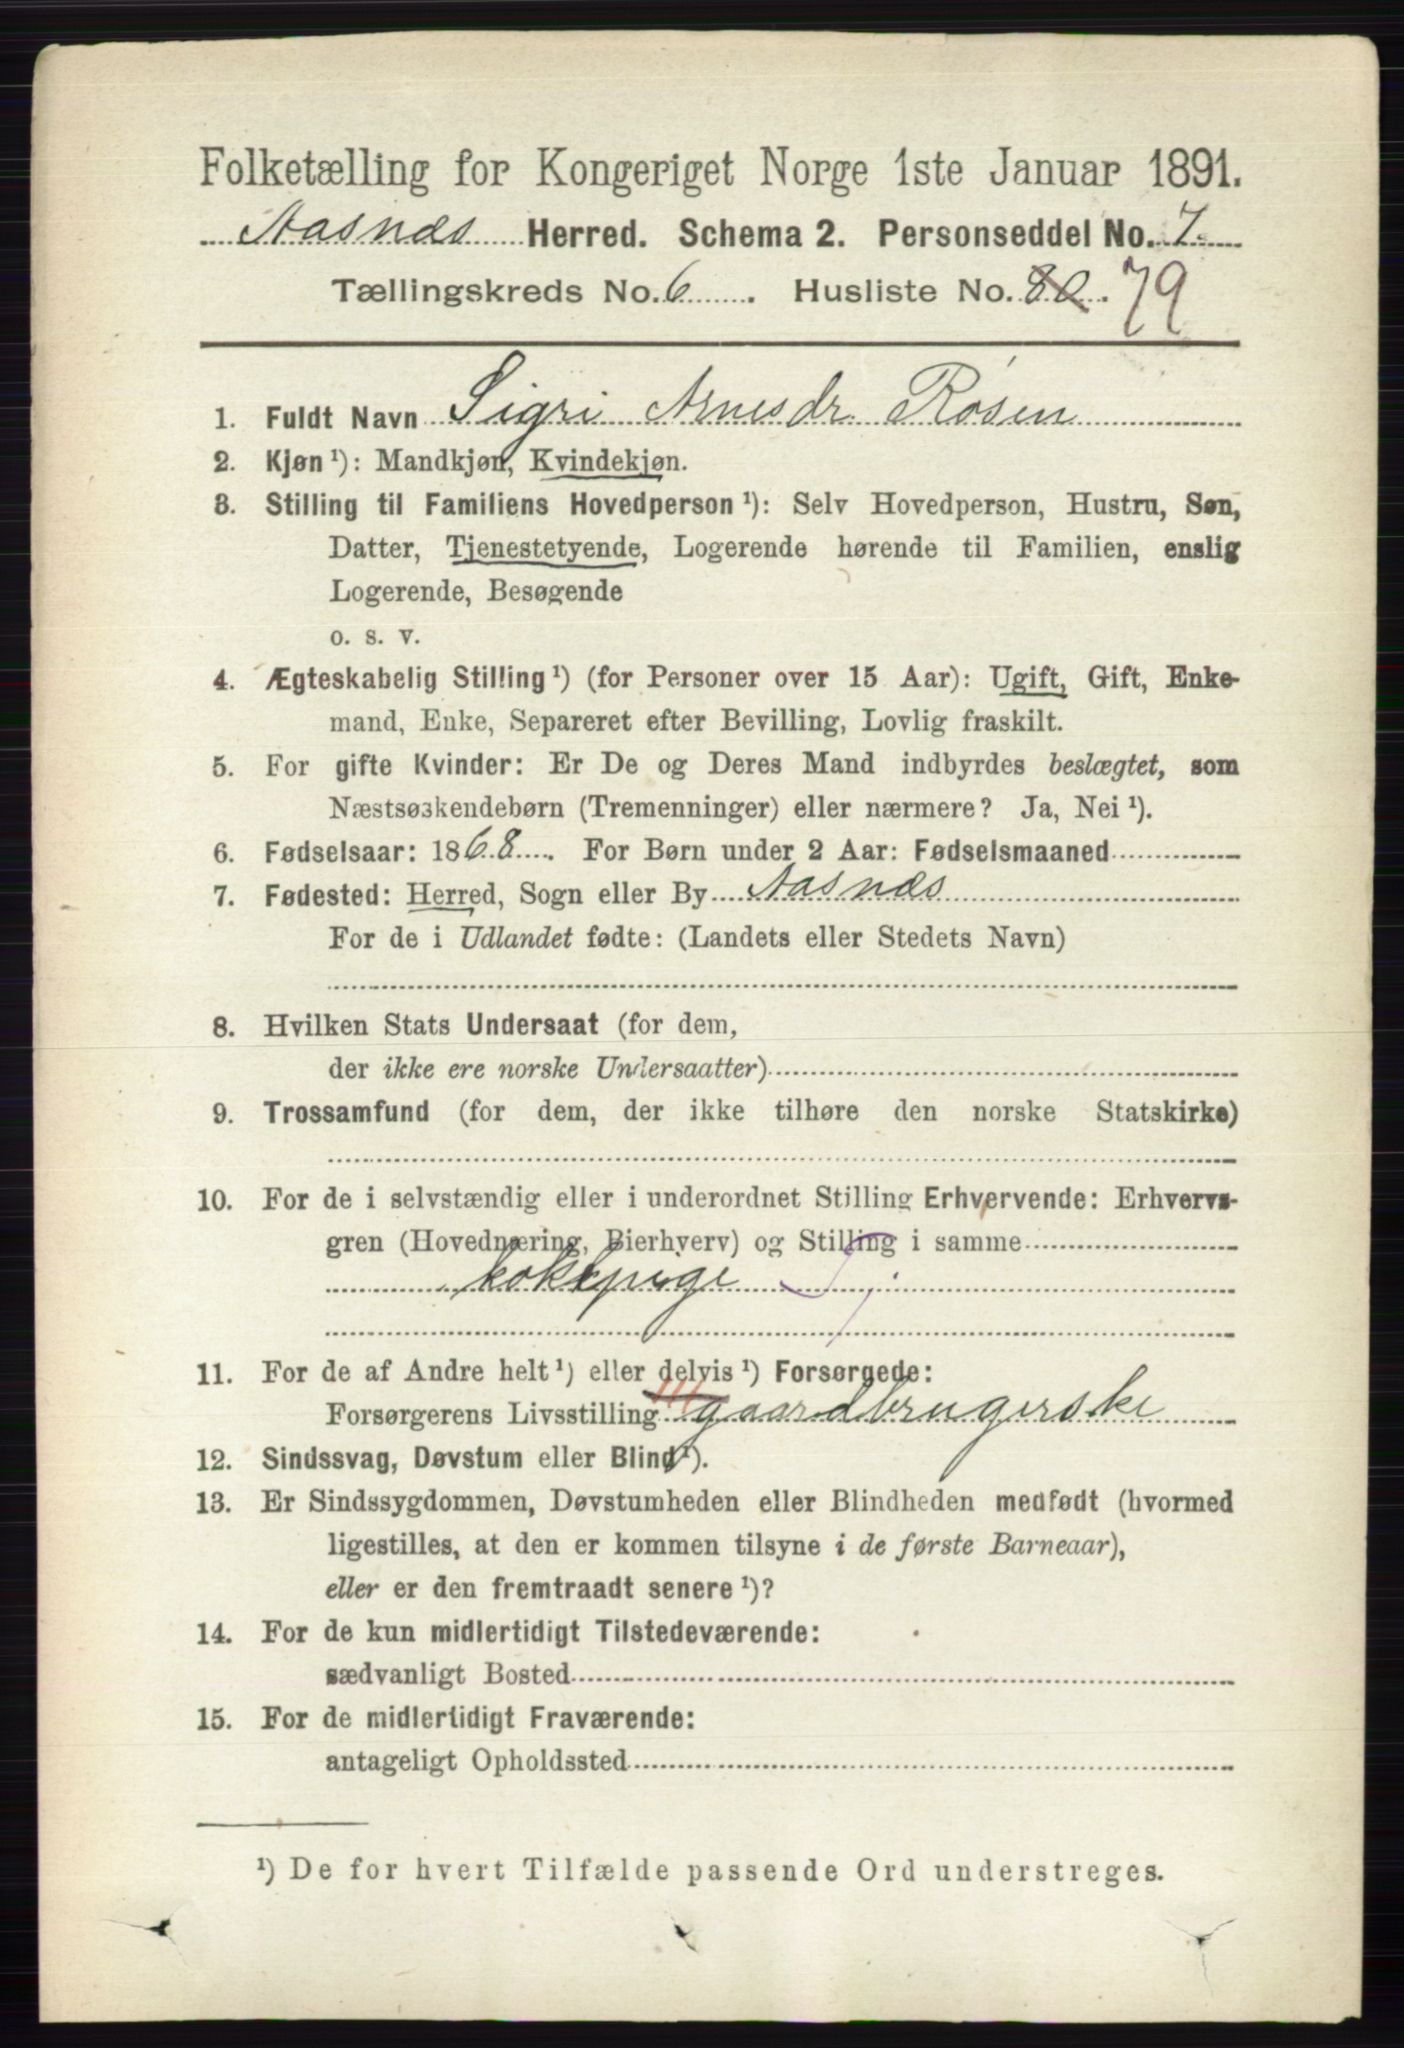 Folketælling for Kongeriget Norge 1ste Januar 1891.
Aasnæs Herred. Schema 2. Personseddel No. 7
Tællingskreds No. 6. Husliste No. 80. 79
1. Fuldt Navn Sigri Arnesdr. Røsen
2. Kjøn ¹): Mandkjøn, Kvindekjøn.
3. Stilling til Familiens Hovedperson ¹): Selv Hovedperson, Hustru, Søn,
Datter, Tjenestetyende, Logerende hørende til Familien, enslig
Logerende, Besøgende
o. s. v.
4. Ægteskabelig Stilling ¹) (for Personer over 15 Aar): Ugift, Gift, Enke-
mand, Enke, Separeret efter Bevilling, Lovlig fraskilt.
5. For gifte Kvinder: Er De og Deres Mand indbyrdes beslægtet, som
Næstsøskendebørn (Tremenninger) eller nærmere? Ja, Nei ¹).
6. Fødselsaar: 1868. For Børn under 2 Aar: Fødselsmaaned
7. Fødested: Herred, Sogn eller By Aasnæs
For de i Udlandet fødte: (Landets eller Stedets Navn)
8. Hvilken Stats Undersaat (for dem,
der ikke ere norske Undersaatter)
9. Trossamfund (for dem, der ikke tilhøre den norske Statskirke)
10. For de i selvstændig eller i underordnet Stilling Erhvervende: Erhvervs-
gren (Hovednæring, Bierhverv) og Stilling i samme
kokkpige
11. For de af Andre helt ¹) eller delvis ¹) Forsørgede:
Forsørgerens Livsstilling gaardbrugerske
12. Sindssvag, Døvstum eller Blind ¹).
13. Er Sindssygdommen, Døvstumheden eller Blindheden medfødt (hvormed
ligestilles, at den er kommen tilsyne i de første Barneaar),
eller er den fremtraadt senere ¹)?
14. For de kun midlertidigt Tilstedeværende:
sædvanligt Bosted
15. For de midlertidigt Fraværende:
antageligt Opholdssted
¹) De for hvert Tilfælde passende Ord understreges.